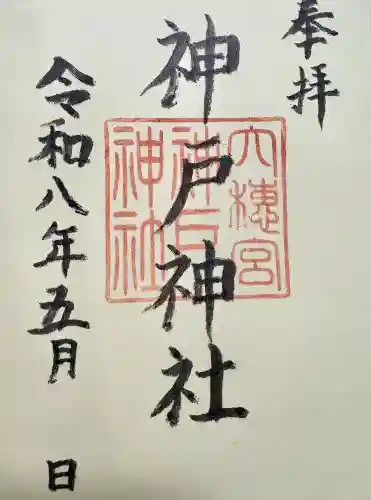 奉拝
神戸神社
令和八年五月 日
六穂宮
神戸
神社